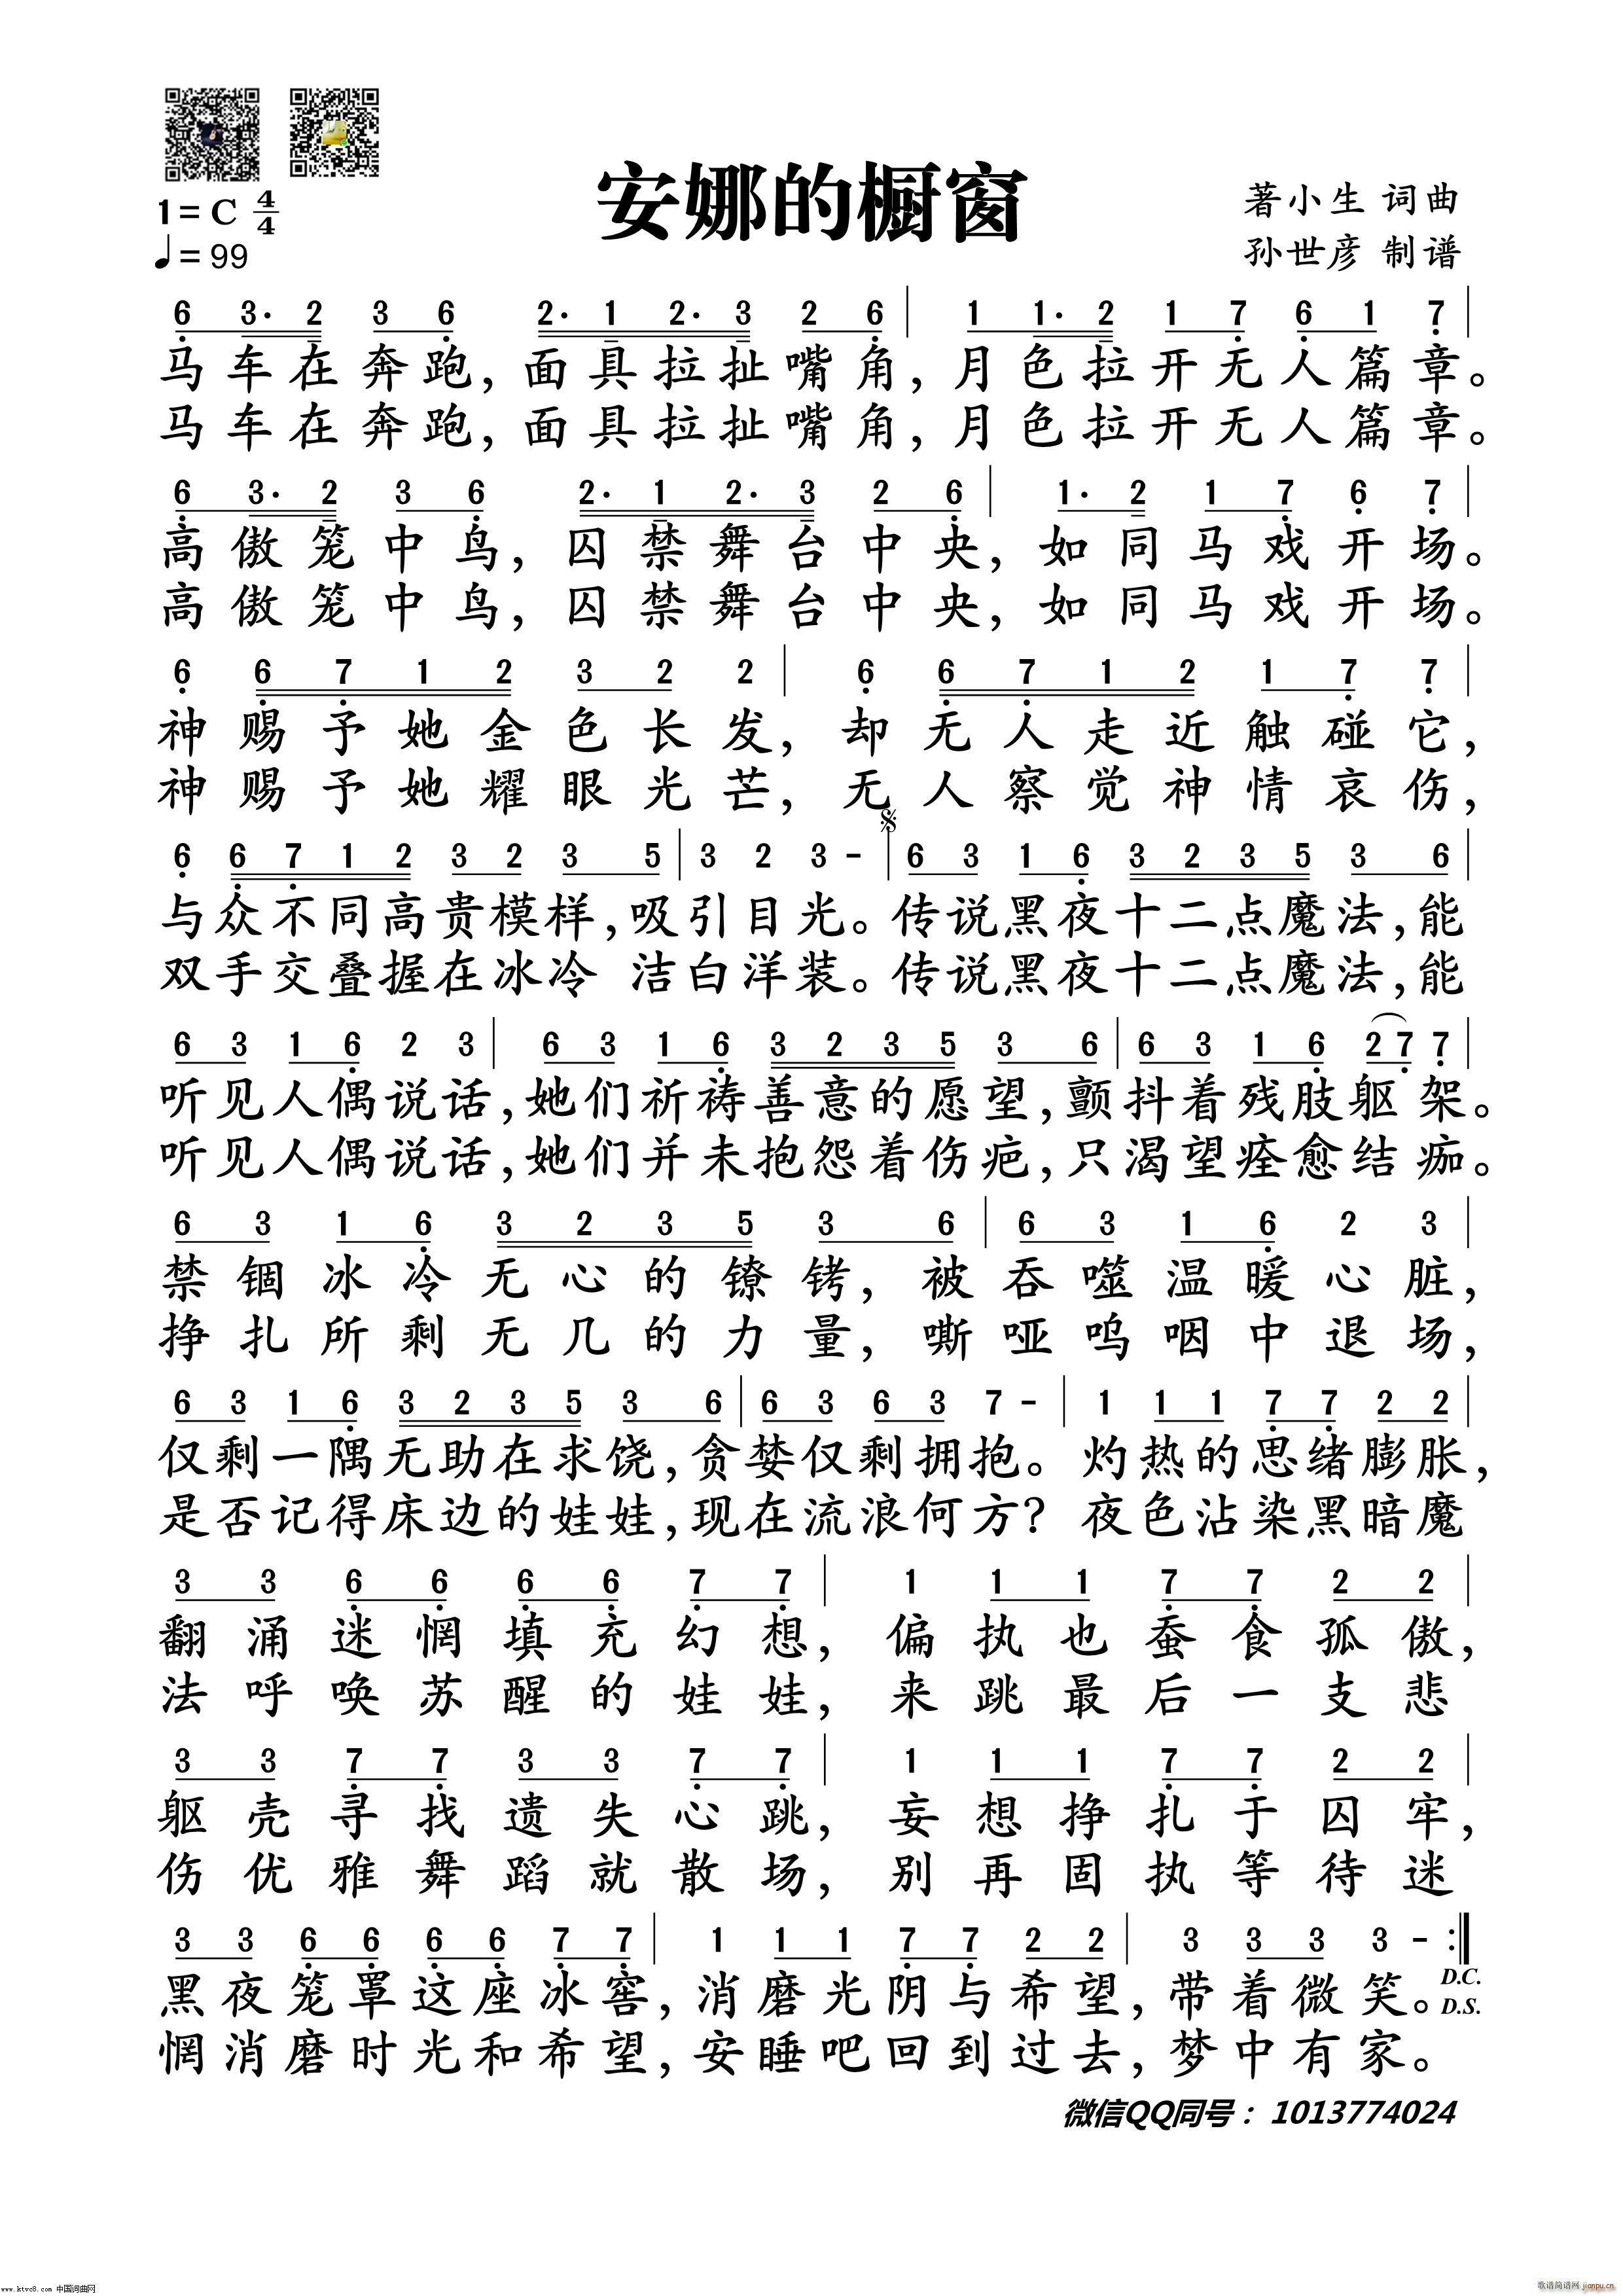 安娜的橱窗
1=C 4/4
♩=99
著小生 词曲
孙世彦 制谱
6 3· 2 3 6 2· 1 2· 3 2 6 | 1 1· 2 1 7 6 1 7 |
马车在奔跑，面具拉扯嘴角，月色拉开无人篇章。
马车在奔跑，面具拉扯嘴角，月色拉开无人篇章。
6 3· 2 3 6 2· 1 2· 3 2 6 | 1· 2 1 7 6 7 |
高傲笼中鸟，囚禁舞台中央，如同马戏开场。
高傲笼中鸟，囚禁舞台中央，如同马戏开场。
6 6 7 1 2 3 2 2 | 6 6 7 1 2 1 7 7 |
神赐予她金色长发，却无人走近触碰它，
神赐予她耀眼光芒，无人察觉神情哀伤，
6 6 7 1 2 3 2 3 5 | 3 2 3 - | 6 3 1 6 3 2 3 5 3 6 |
与众不同高贵模样，吸引目光。传说黑夜十二点魔法，能
双手交叠握在冰冷 洁白洋装。传说黑夜十二点魔法，能
6 3 1 6 2 3 | 6 3 1 6 3 2 3 5 3 6 | 6 3 1 6 2 7 7 |
听见人偶说话，她们祈祷善意的愿望，颤抖着残肢躯架。
听见人偶说话，她们并未抱怨着伤疤，只渴望痊愈结痂。
6 3 1 6 3 2 3 5 3 6 | 6 3 1 6 2 3 |
禁锢冰冷无心的镣铐，被吞噬温暖心脏，
挣扎所剩无几的力量，嘶哑呜咽中退场，
6 3 1 6 3 2 3 5 3 6 | 6 3 6 3 7 - | 1 1 1 7 7 2 2 |
仅剩一隅无助在求饶，贪婪仅剩拥抱。灼热的思绪膨胀，
是否记得床边的娃娃，现在流浪何方？夜色沾染黑暗魔
3 3 6 6 6 6 7 7 | 1 1 1 7 7 2 2 |
翻涌迷惘填充幻想，偏执也蚕食孤傲，
法呼唤苏醒的娃娃，来跳最后一支悲
3 3 7 7 3 3 7 7 | 1 1 1 7 7 2 2 |
躯壳寻找遗失心跳，妄想挣扎于囚牢，
伤优雅舞蹈就散场，别再固执等待迷
3 3 6 6 6 6 7 7 | 1 1 1 7 7 2 2 | 3 3 3 3 - :‖
黑夜笼罩这座冰窖，消磨光阴与希望，带着微笑。
D.C.
D.S.
惘消磨时光和希望，安睡吧回到过去，梦中有家。
微信QQ同号：1013774024
www.ktvc8.com 中国词曲网
歌谱简谱网
jianpu.cn